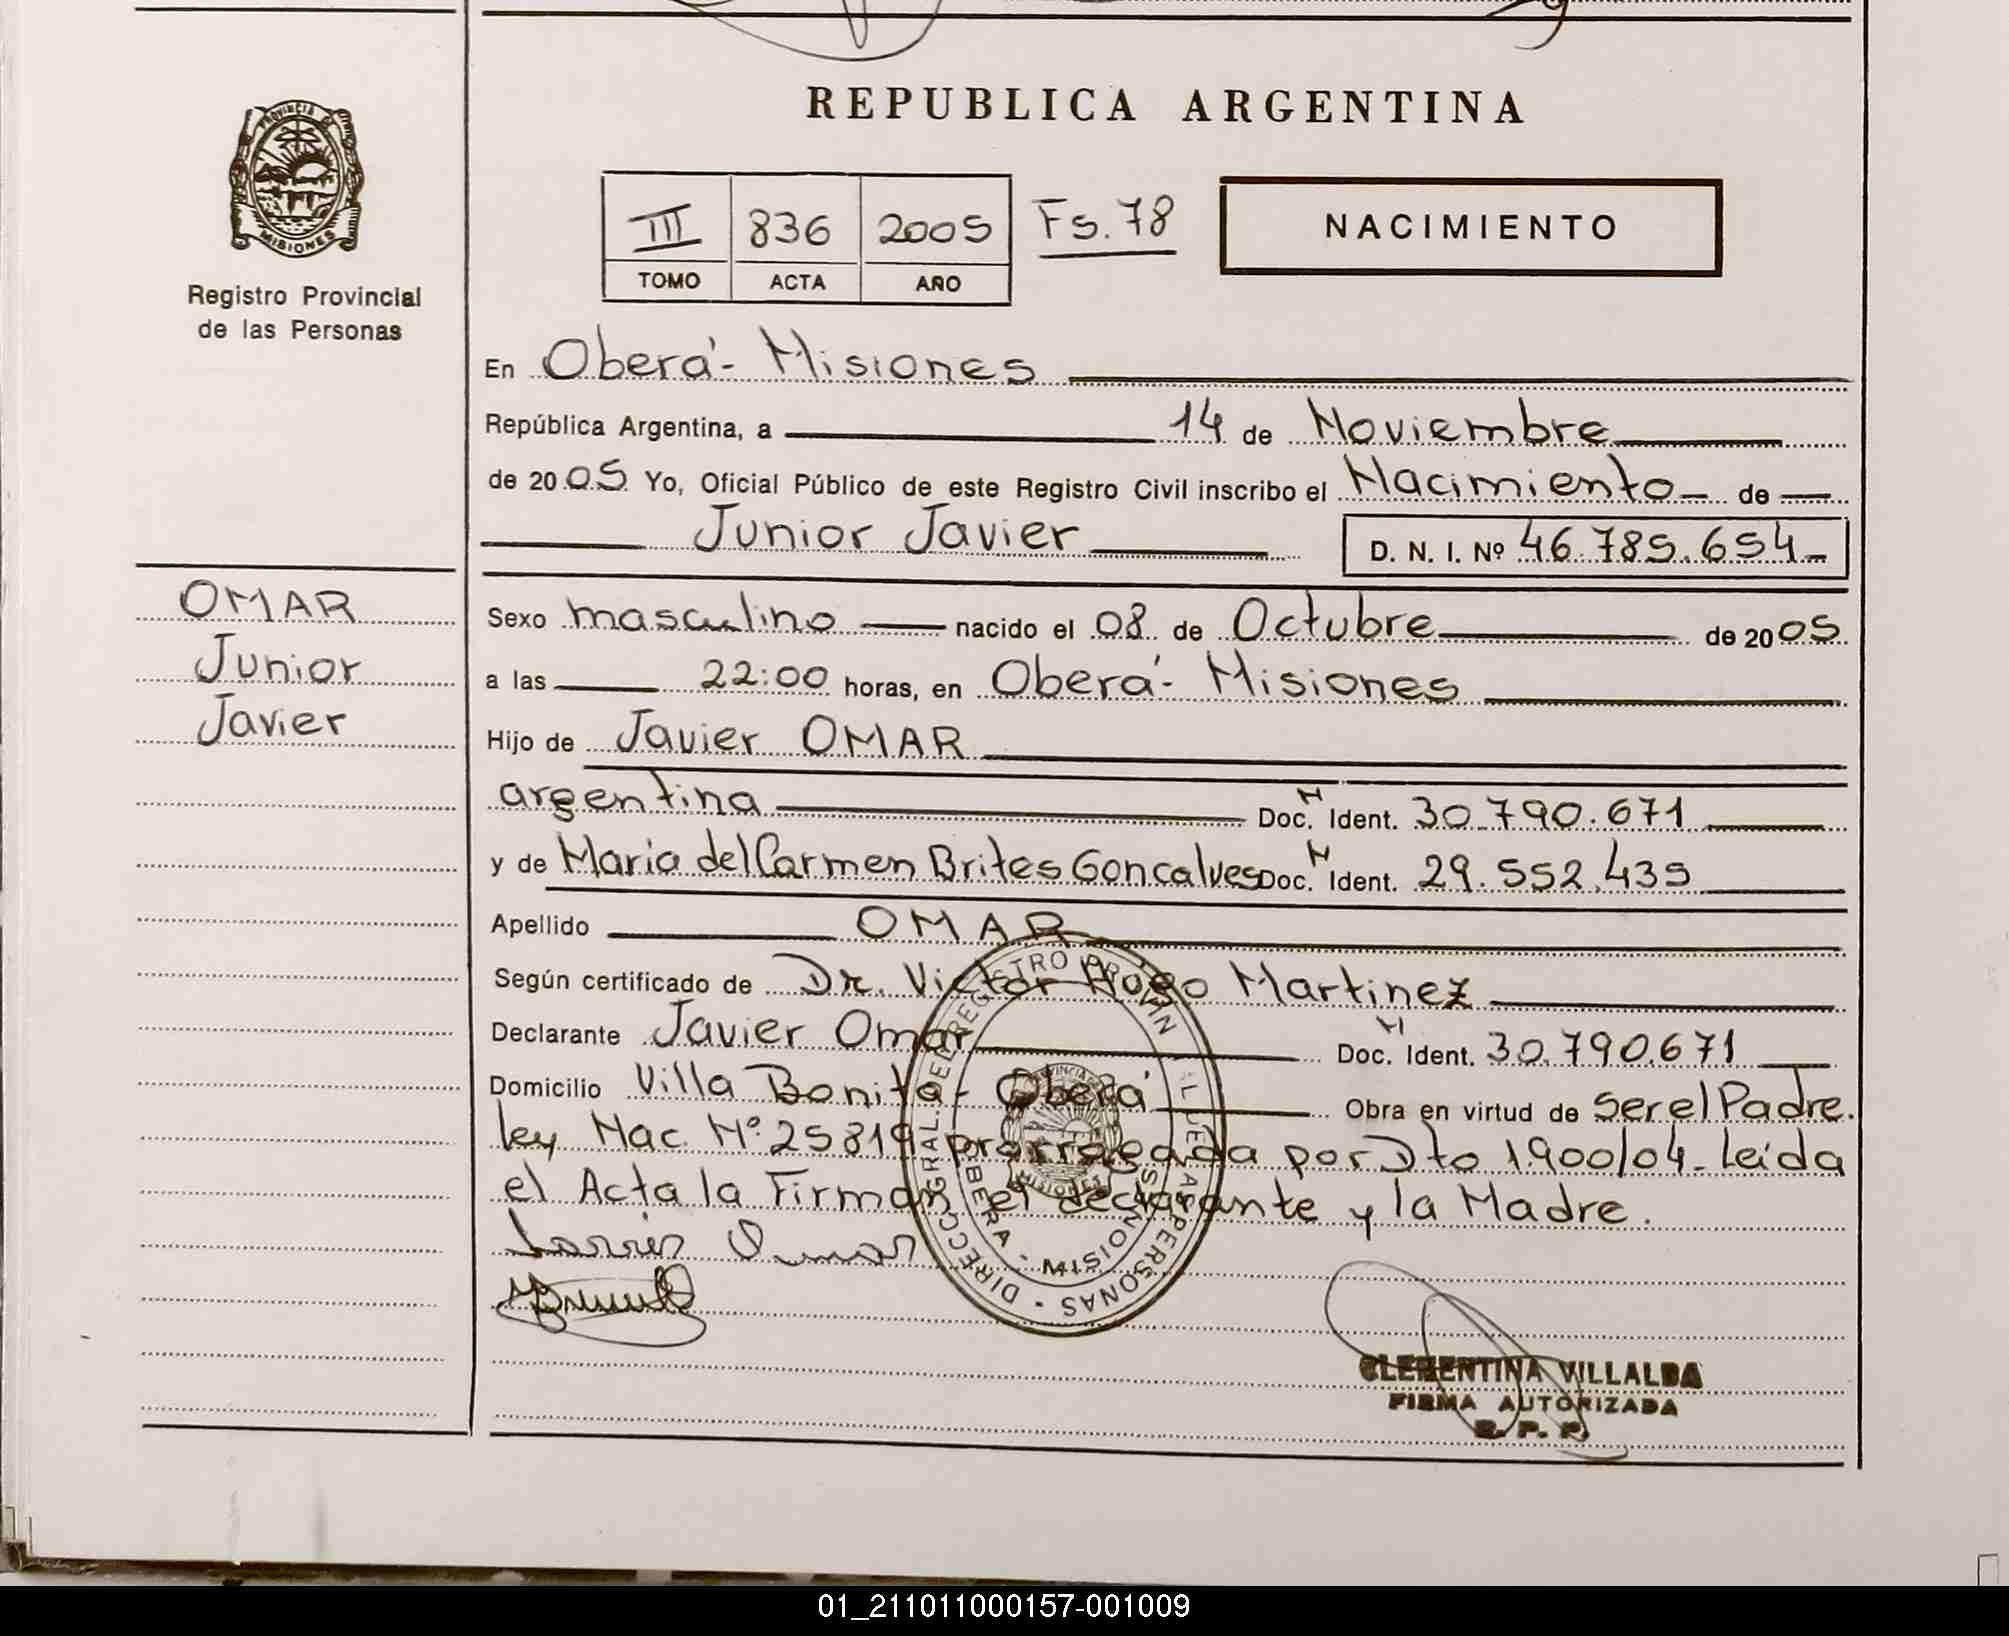 REPUBLICA ARGENTINA
PROVINCIA DE
MISIONES
Registro Provincial
de las Personas
III 836 2005 Fs. 78
TOMO ACTA AÑO
NACIMIENTO
En Oberá - Misiones
República Argentina, a 14 de Noviembre
de 2005 Yo, Oficial Público de este Registro Civil inscribo el Nacimiento de
Junior Javier D. N. I. Nº 46.785.654
OMAR
Junior
Javier
Sexo masculino nacido el 08 de Octubre de 2005
a las 22:00 horas, en Oberá - Misiones
Hijo de Javier OMAR
argentina Doc. N Ident. 30.790.671
y de Maria del Carmen Brites Goncalves Doc. N Ident. 29.552.435
Apellido OMAR
Según certificado de Dr. Victor Hugo Martinez
Declarante Javier Omar Doc. N Ident. 30.790.671
Domicilio Villa Bonita - Oberá Obra en virtud de ser el Padre.
ley Nac. Nº 25819 prorrogada por Dto 1900/04 - Leída
el Acta la Firman el declarante y la Madre.
Omar
DIRECC. GRAL. DEL REGISTRO PROVINCIAL DE LAS PERSONAS
OBERA - MISIONES
CLEMENTINA VILLALBA
FIRMA AUTORIZADA
R. P. P.
01_211011000157-001009